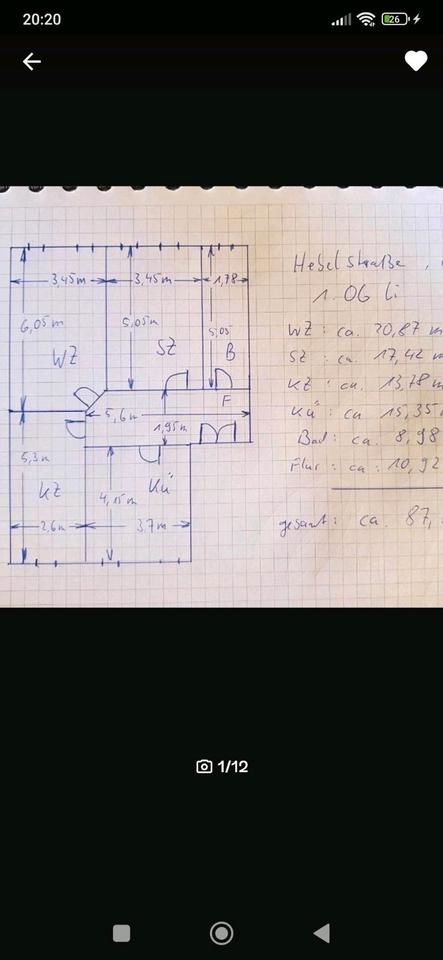 20:20
26
Hebelstraße,
1.06 li
WZ: ca. 20,87 m
SZ: ca. 17,42 m
KZ: ca. 13,78 m
Kü: ca 15,35
Bad: ca. 8,98
Flur: ca. 10,92
gesamt: ca. 87,
3,45m
3,45m
1,78
6,05m
5,05m
5,05
WZ
SZ
B
F
5,6m
1,95m
5,3m
KZ
4,15m
Kü
2,6m
3,7m
1/12